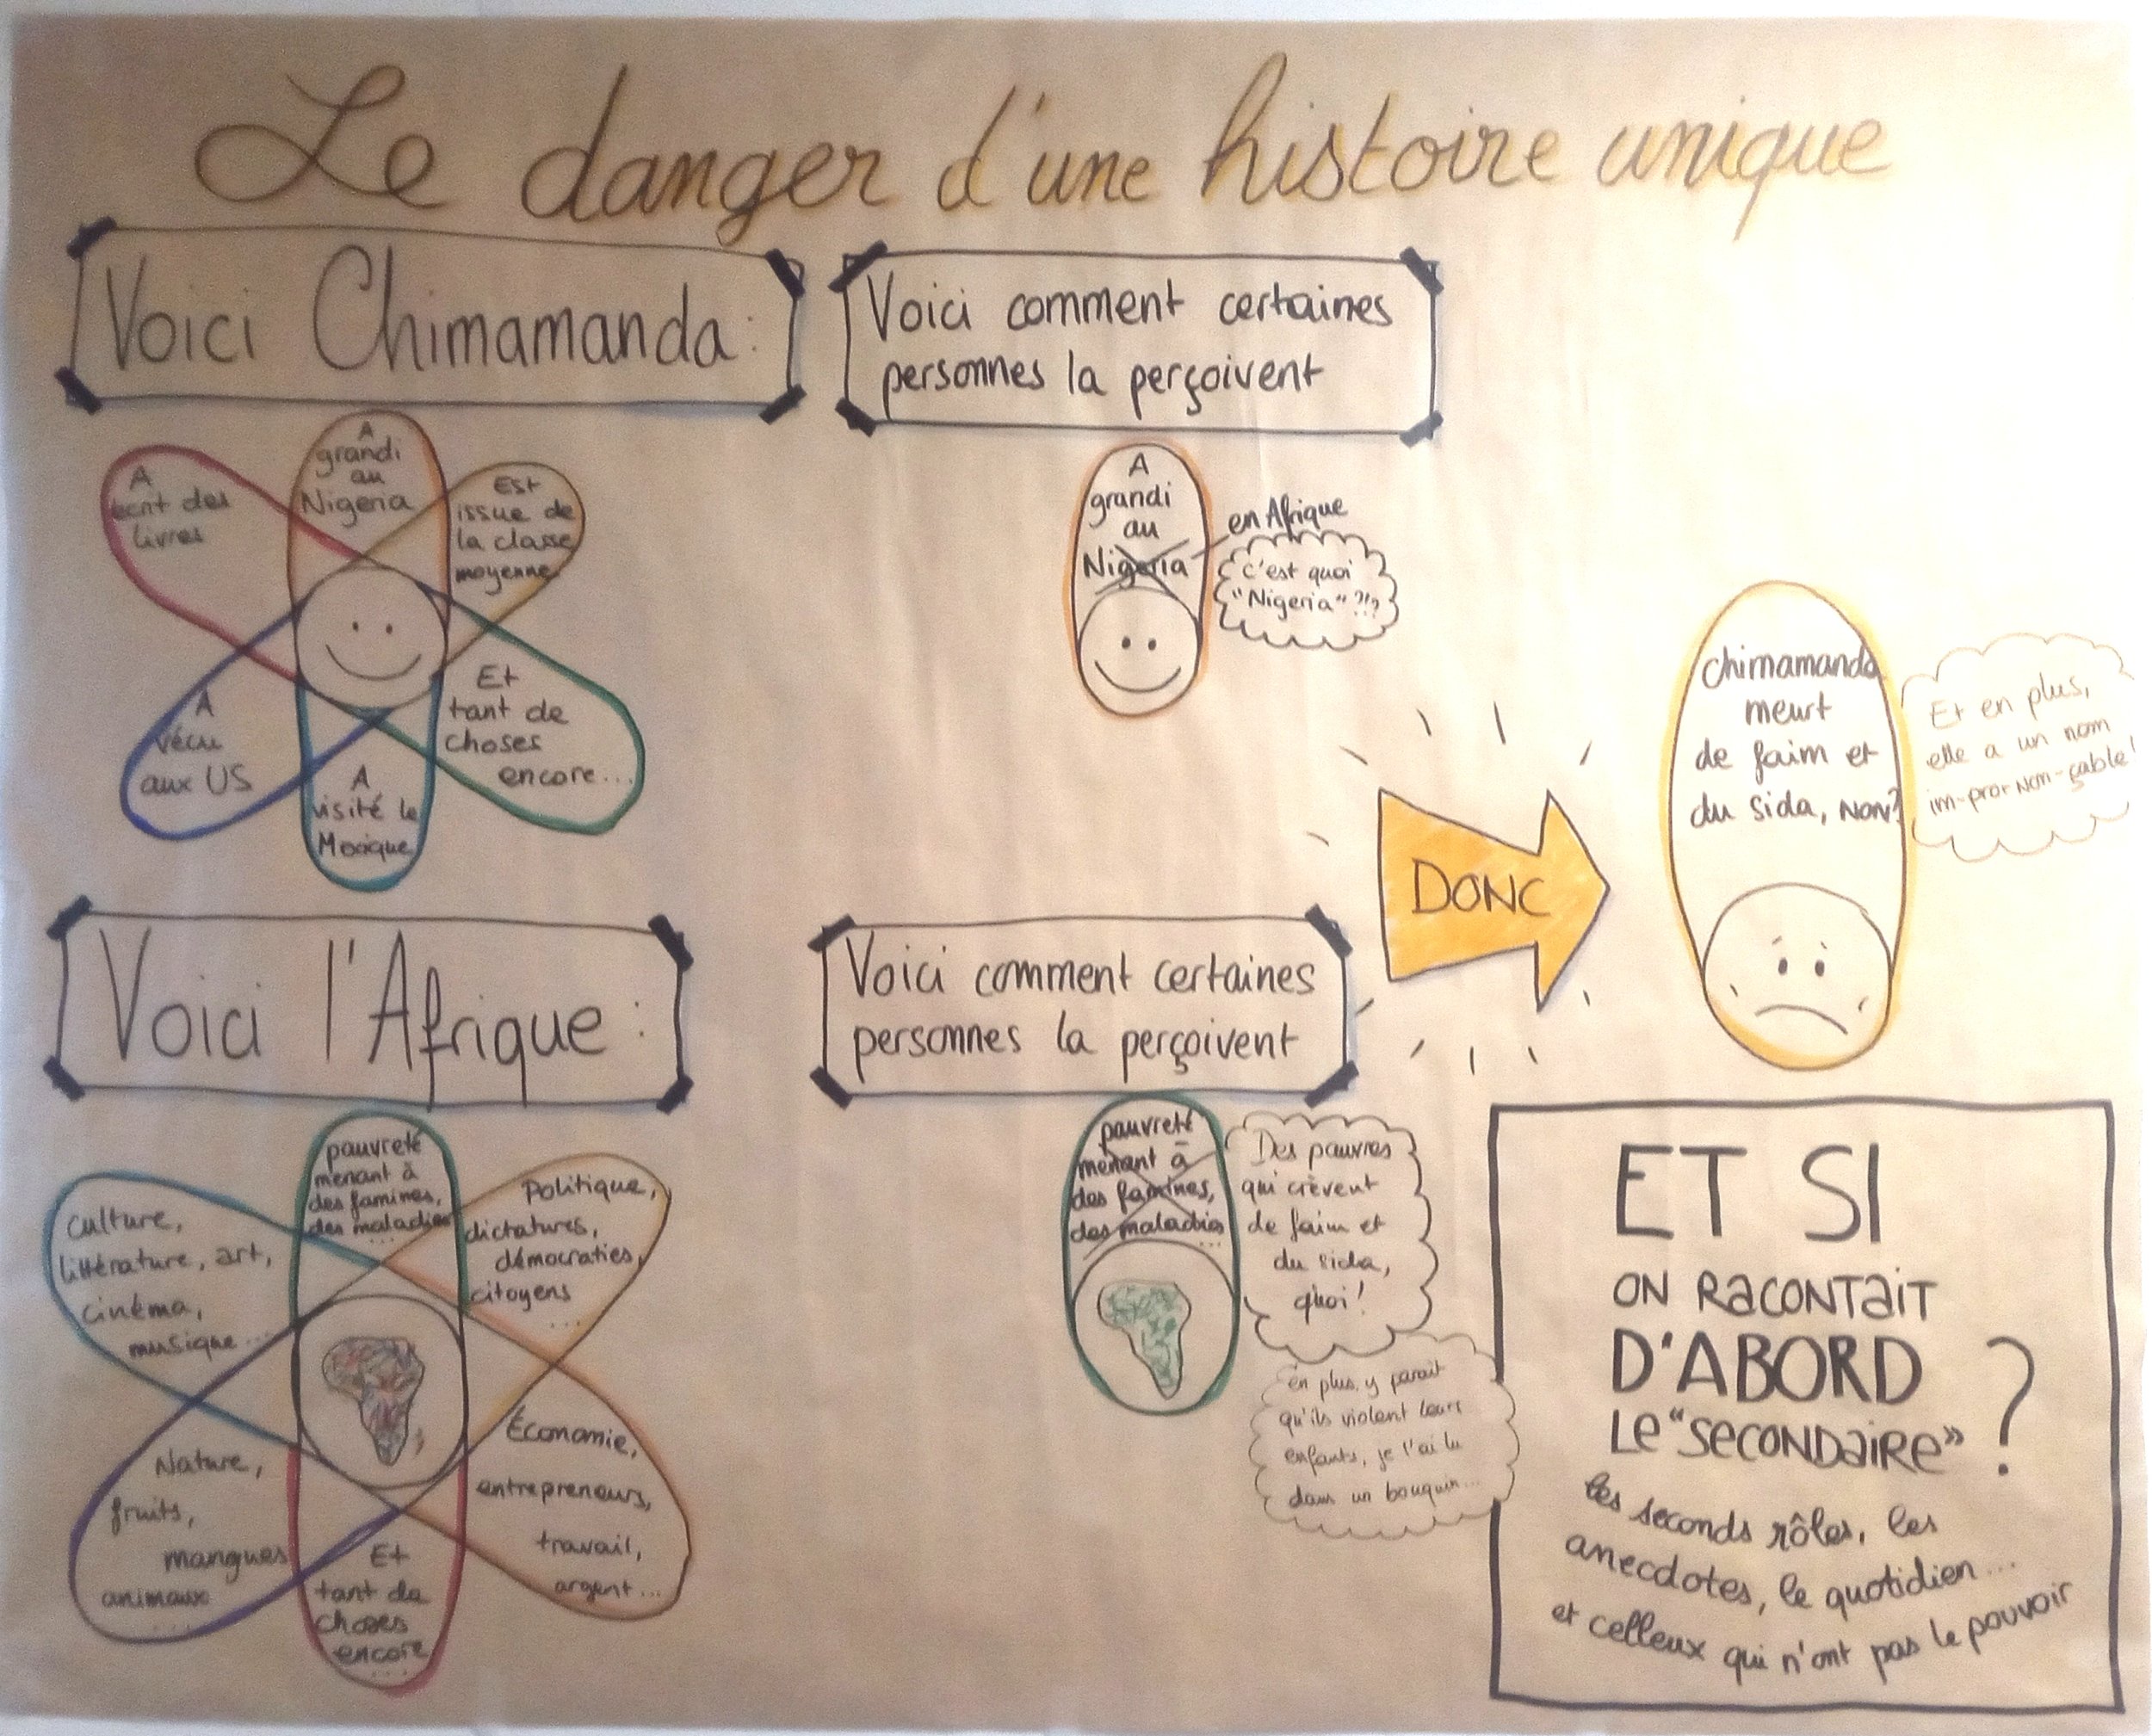 Le danger d'une histoire unique
Voici Chimamanda:
A
grandi
au
Nigeria
A
écrit des
livres
Est
issue de
la classe
moyenne
A
vécu
aux US
Et
tant de
choses
encore...
A
visité le
Mexique
Voici comment certaines
personnes la perçoivent
A
grandi
au
Nigeria
en Afrique
C'est quoi
"Nigeria" ?!?
DONC
Chimamanda
meurt
de faim et
du sida, NON?
Et en plus,
elle a un nom
im-pro-NON-çable!
Voici l'Afrique:
pauvreté
menant à
des famines,
des maladies
...
Culture,
littérature, art,
cinéma,
musique...
Politique,
dictatures,
démocraties,
citoyens
...
Nature,
fruits,
mangues
animaux
...
Économie,
entrepreneurs,
travail,
argent...
Et
tant de
choses
encore
...
Voici comment certaines
personnes la perçoivent
pauvreté
menant à
des famines,
des maladies
...
Des pauvres
qui crèvent
de faim et
du sida,
quoi!
En plus, y parait
qu'ils violent leurs
enfants, je l'ai lu
dans un bouquin...
ET SI
ON RACONTAIT
D'ABORD
LE "SECONDAIRE" ?
les seconds rôles, les
anecdotes, le quotidien...
et celleux qui n'ont pas le pouvoir